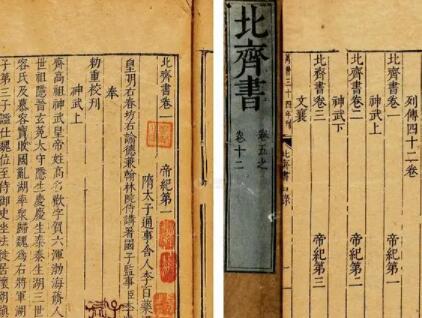 北齊書卷一 帝紀第一
隋太子通事舍人李百藥
皇明右春坊右諭德兼翰林院侍講署國子監事臣李
奉
勅重校刊
神武上
齊高祖神武皇帝姓高名歡字賀六渾渤海蓨人
世祖隱晉玄菟太守隱生慶慶生泰泰生湖三世
容氏及慕容寶敗國亂湖率衆歸魏爲右將軍湖
子第三子謐仕魏位至侍御史坐法徙居懷朔鎮
北齊書
卷五之
卷十二
列傳四十二卷
北齊書卷一 帝紀第一
神武上
北齊書卷二 帝紀第二
神武下
北齊書卷三 帝紀第三
文襄